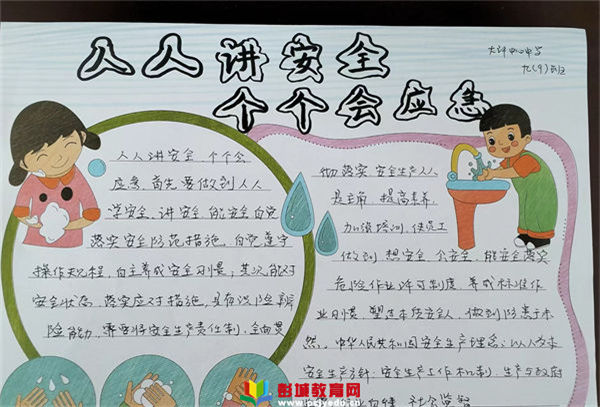 人人讲安全
个个会应急
大许中心中学
九(9)班
人人讲安全 个个会
应急,首先要做到人人
学安全、讲安全、能安全自觉
落实安全防范措施,自觉遵守
操作规程,自主养成安全习惯;其次,能对
安全状态,落实应对措施,具有识险辨
险能力,需要将安全生产责任制,全面贯
彻落实,安全生产人人
是主角,提高素养,
加强培训,使员工
做到 想安全 会安全 能安全落实
危险作业许可制度,养成标准作
业习惯,塑造本质安全人,做到防患于未
然。中华人民共和国安全生产理念:以人为本
安全生产方针:安全生产工作机制:生产与政府
社会监督
彭城教育网
www.pcjyedu.cn